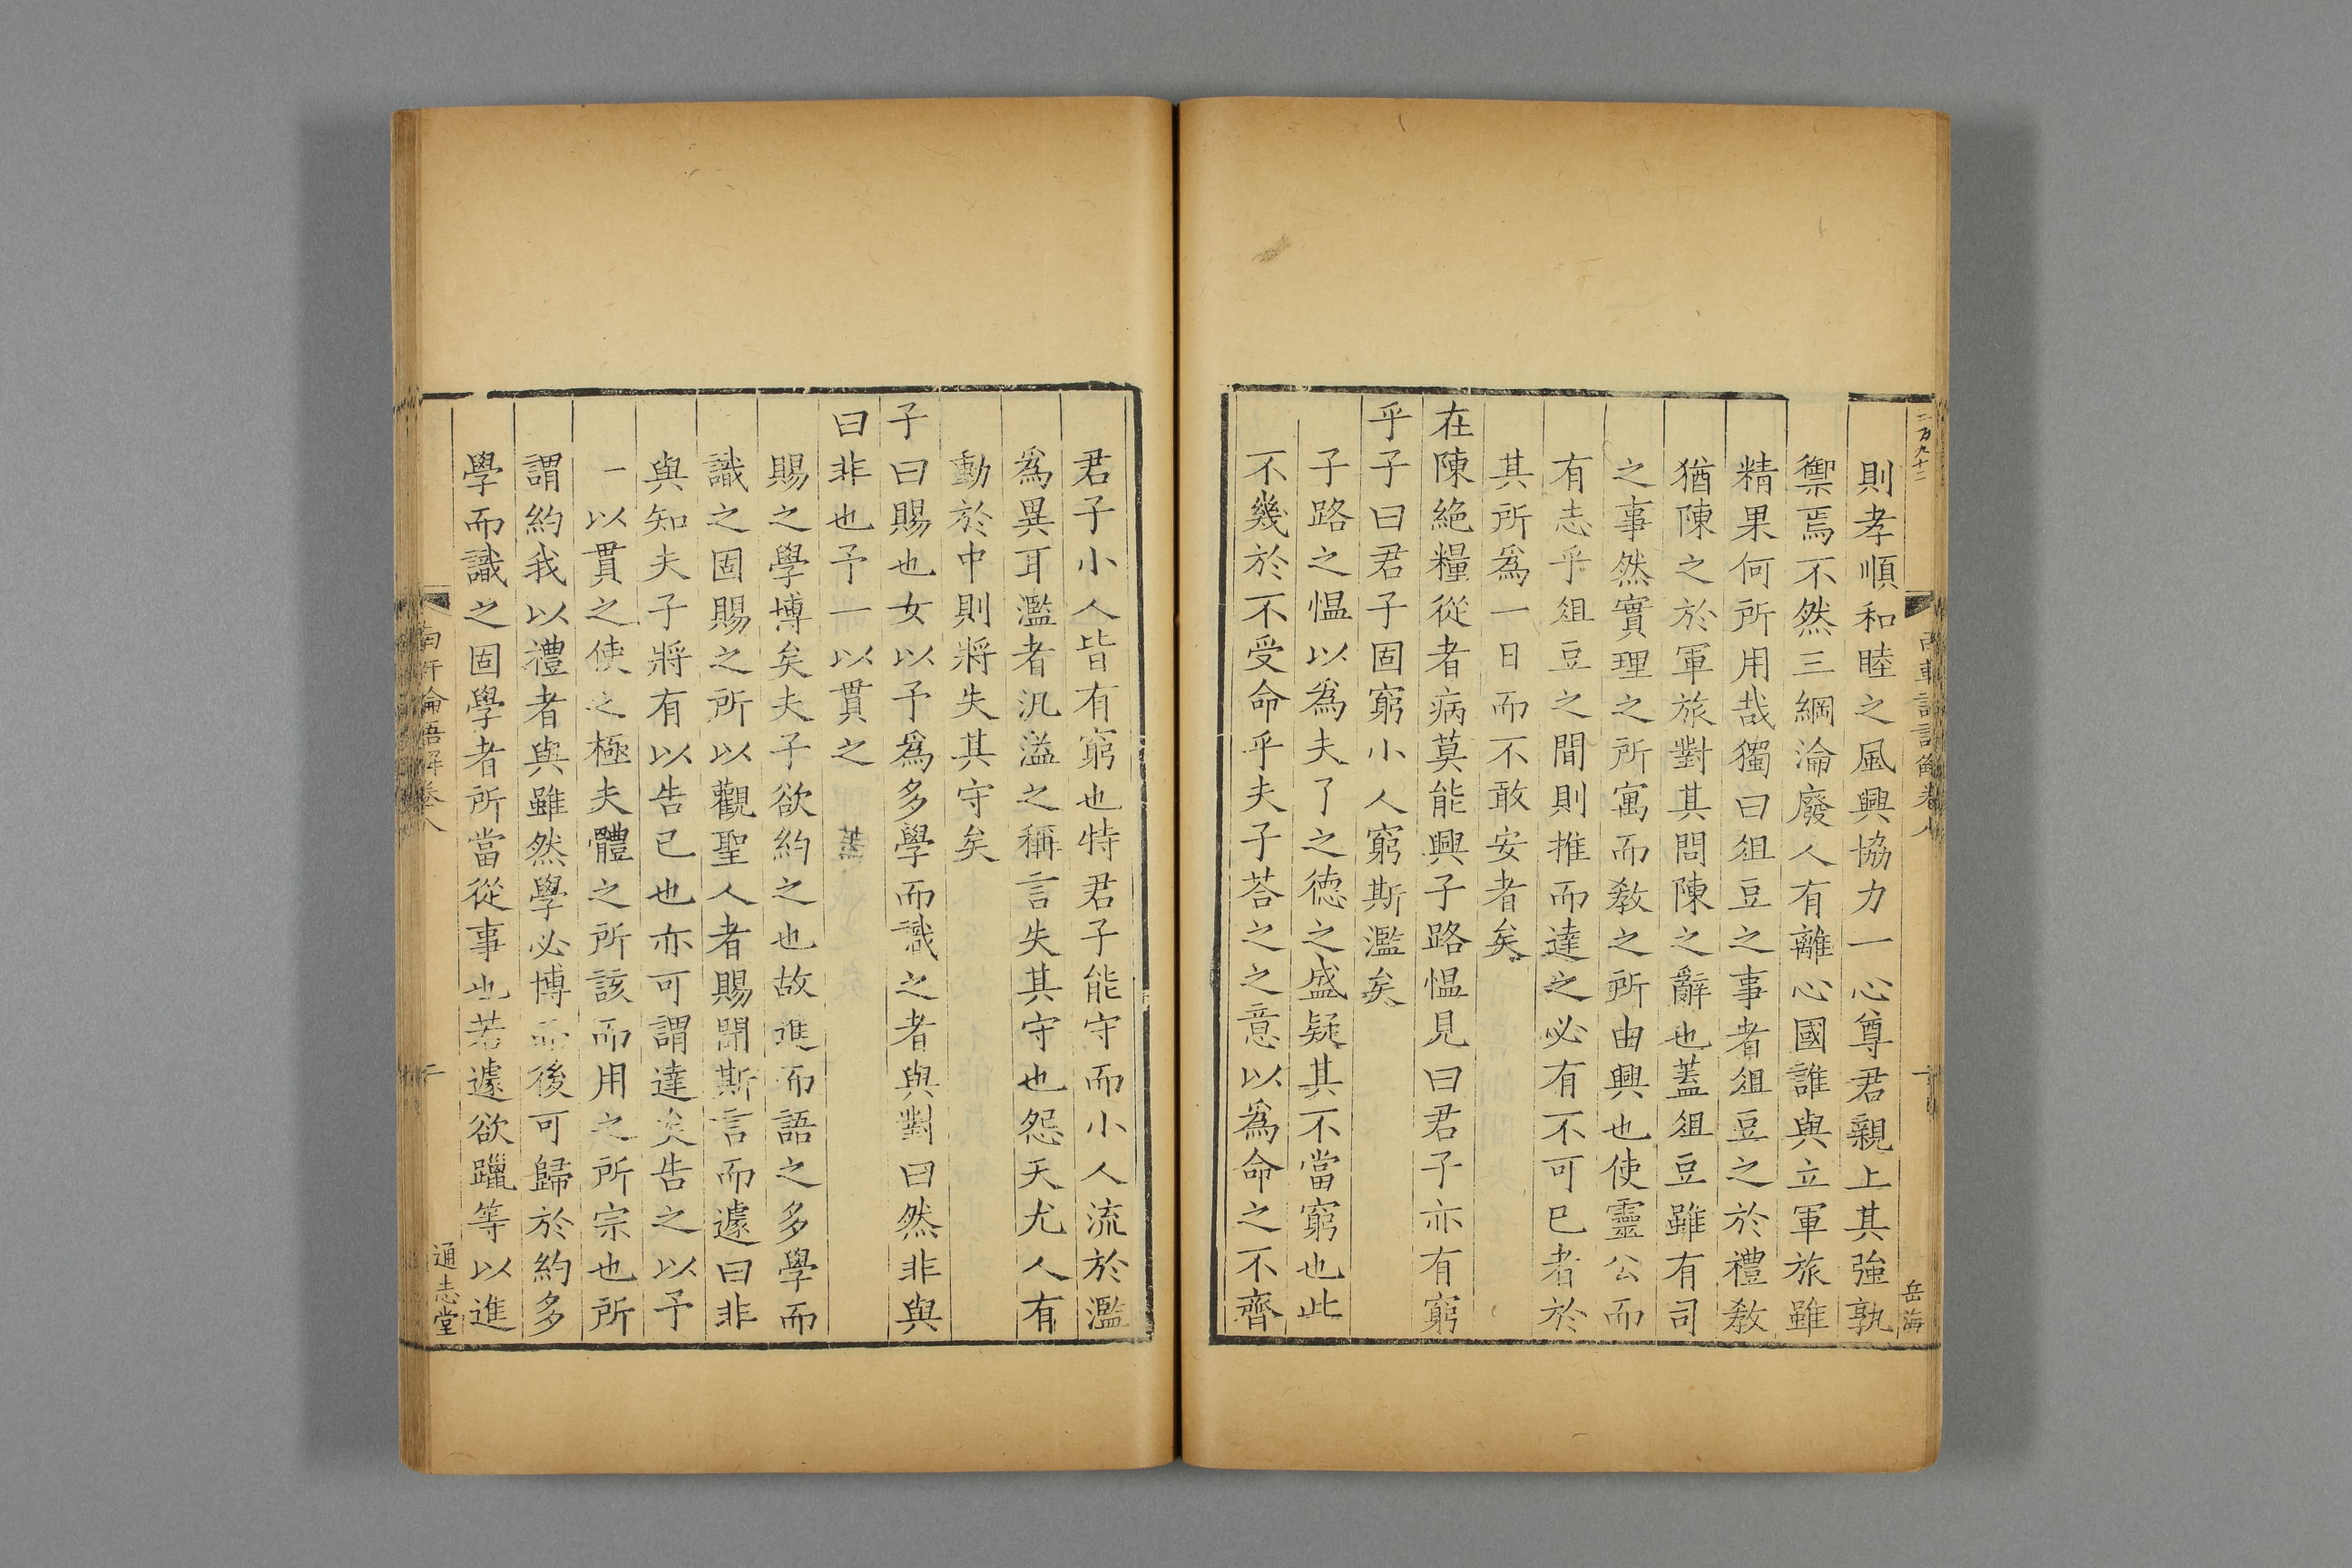 則孝順和睦之風興協力一心尊君親上其強孰
禦焉不然三綱淪廢人有離心國誰與立軍旅雖
精果何所用哉獨曰俎豆之事者俎豆之於禮教
猶陳之於軍旅對其問陳之辭也蓋俎豆雖有司
之事然實理之所寓而教之所由興也使靈公而
有志乎俎豆之間則推而達之必有不可已者於
其所爲一日而不敢安者矣
在陳絶糧從者病莫能興子路愠見曰君子亦有窮
乎子曰君子固窮小人窮斯濫矣
子路之愠以爲夫子之德之盛疑其不當窮也此
不幾於不受命乎夫子荅之之意以爲命之不齊
岳海
君子小人皆有窮也特君子能守而小人流於濫
爲異耳濫者汎溢之稱言失其守也怨天尤人有
動於中則將失其守矣
子曰賜也女以予爲多學而識之者與對曰然非與
曰非也予一以貫之
賜之學博矣夫子欲約之也故進而語之多學而
識之固賜之所以觀聖人者賜聞斯言而遽曰非
與知夫子將有以告已也亦可謂達矣告之以予
一以貫之使之極夫體之所該而用之所宗也所
謂約我以禮者與雖然學必博而後可歸於約多
學而識之固學者所當從事也若遽欲躐等以進
南軒論語解卷八
二
通志堂